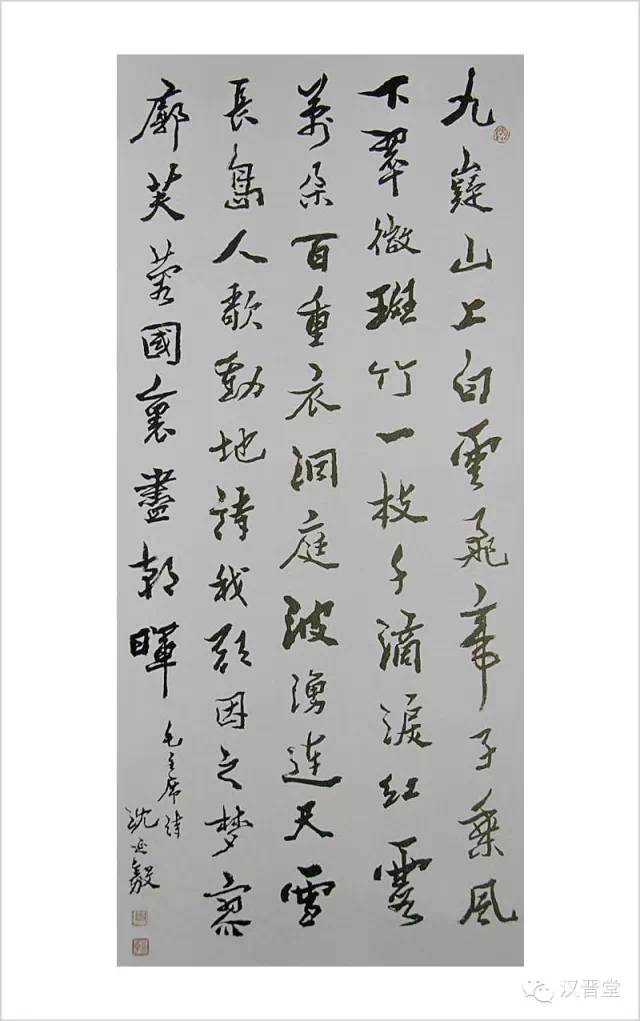 九嶷山上白雲飛帝子乗風
下翠微斑竹一枝千滴淚紅霞
萬朵百重衣洞庭波湧連天雪
長島人歌動地詩我欲因之梦寥
廓芙蓉國裏盡朝暉
毛主席诗
沈延毅
汉晋堂